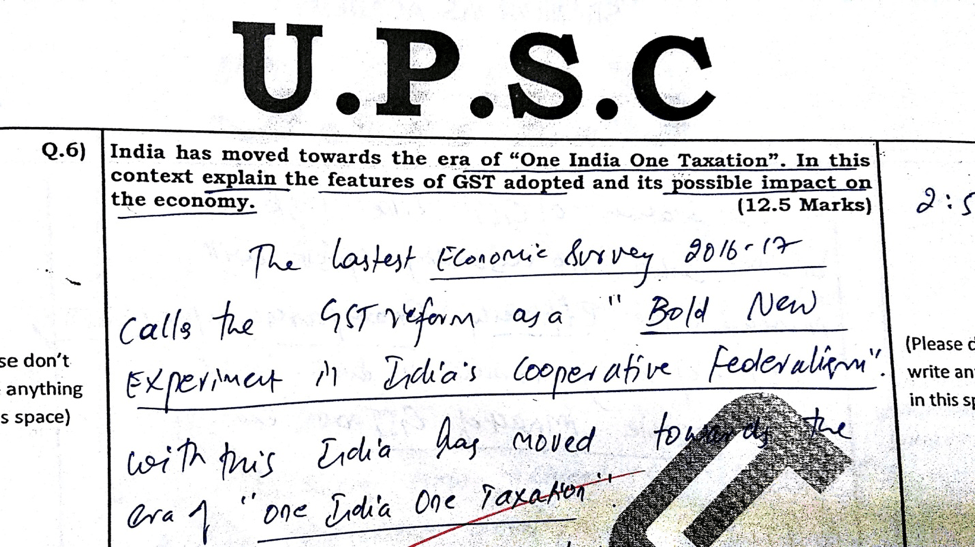 U.P.S.C
Q.6)
India has moved towards the era of “One India One Taxation”. In this
context explain the features of GST adopted and its possible impact on
the economy.
(12.5 Marks)
2:5
The lastest Economic Survey 2016-17
calls the GST reform as a " Bold New
Experiment in India's Cooperative Federalism".
with this India has moved towards the
era of "one India One Taxation".
se don't
anything
s space)
(Please d
write an
in this sp